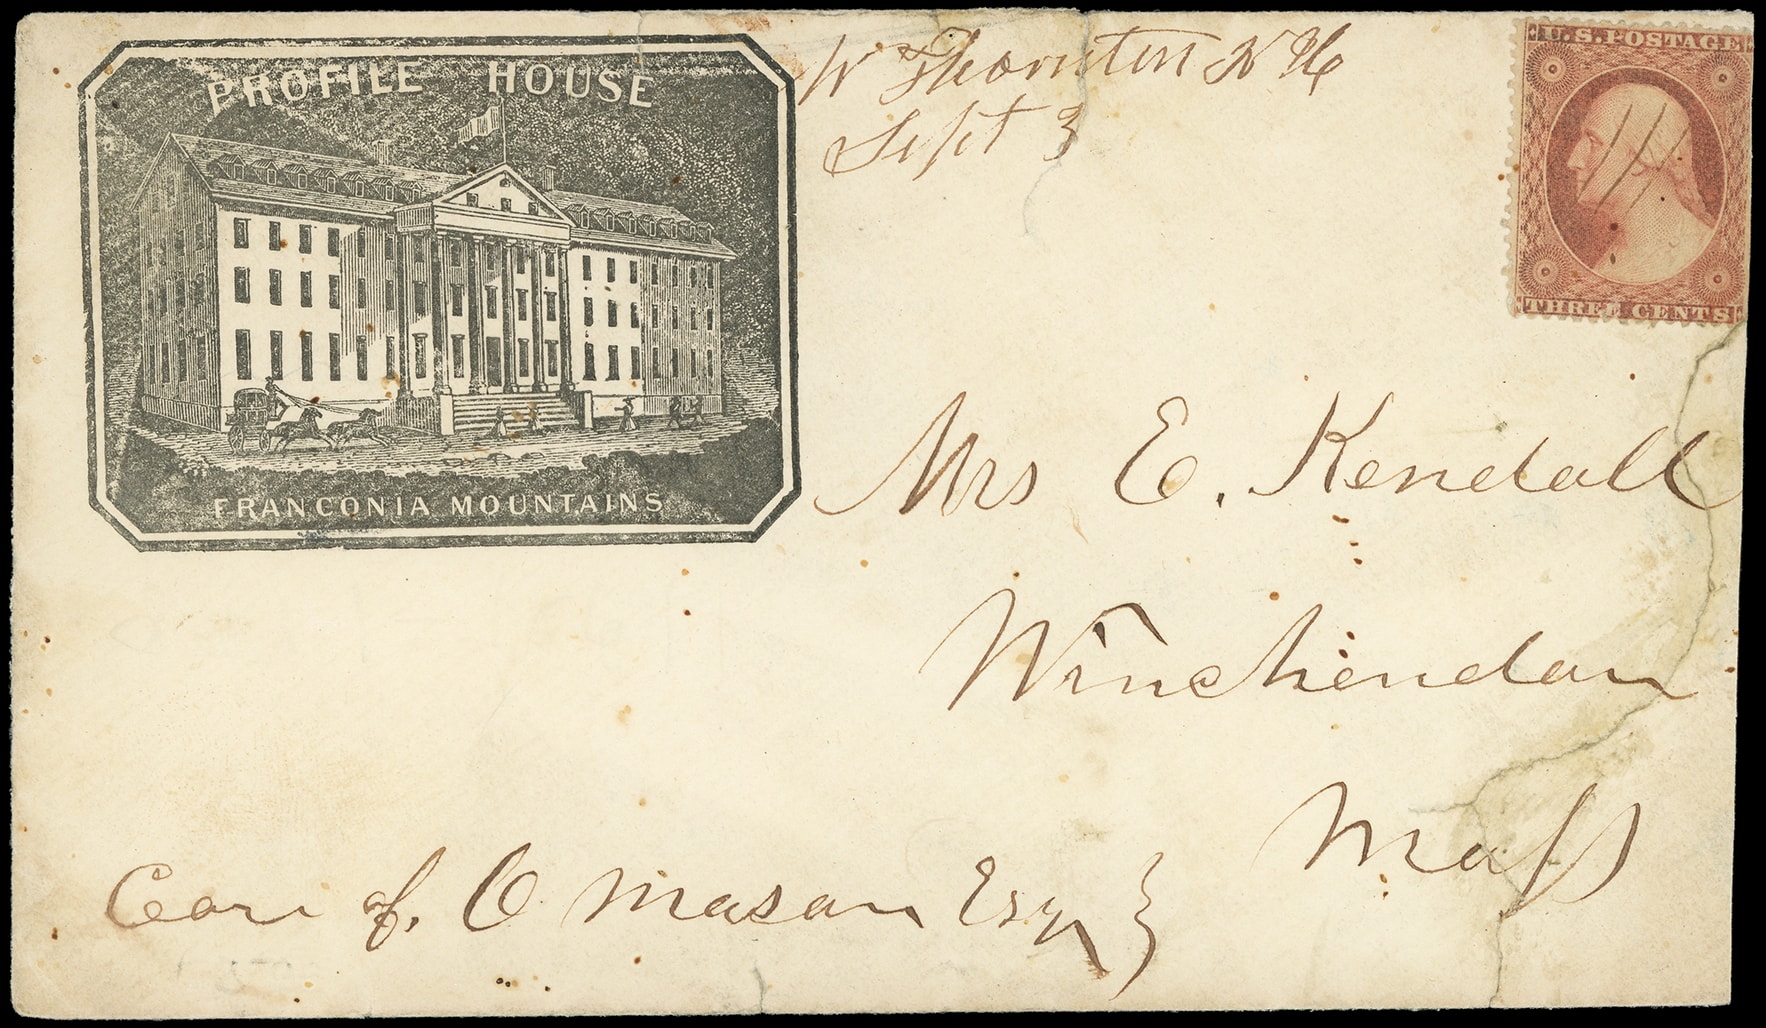 PROFILE HOUSE
FRANCONIA MOUNTAINS
W Thornton N H
Sept 3
U.S. POSTAGE
THREE CENTS
Mrs E. Kendall
Winchendon
Mass
Care of. O Mason Esqr